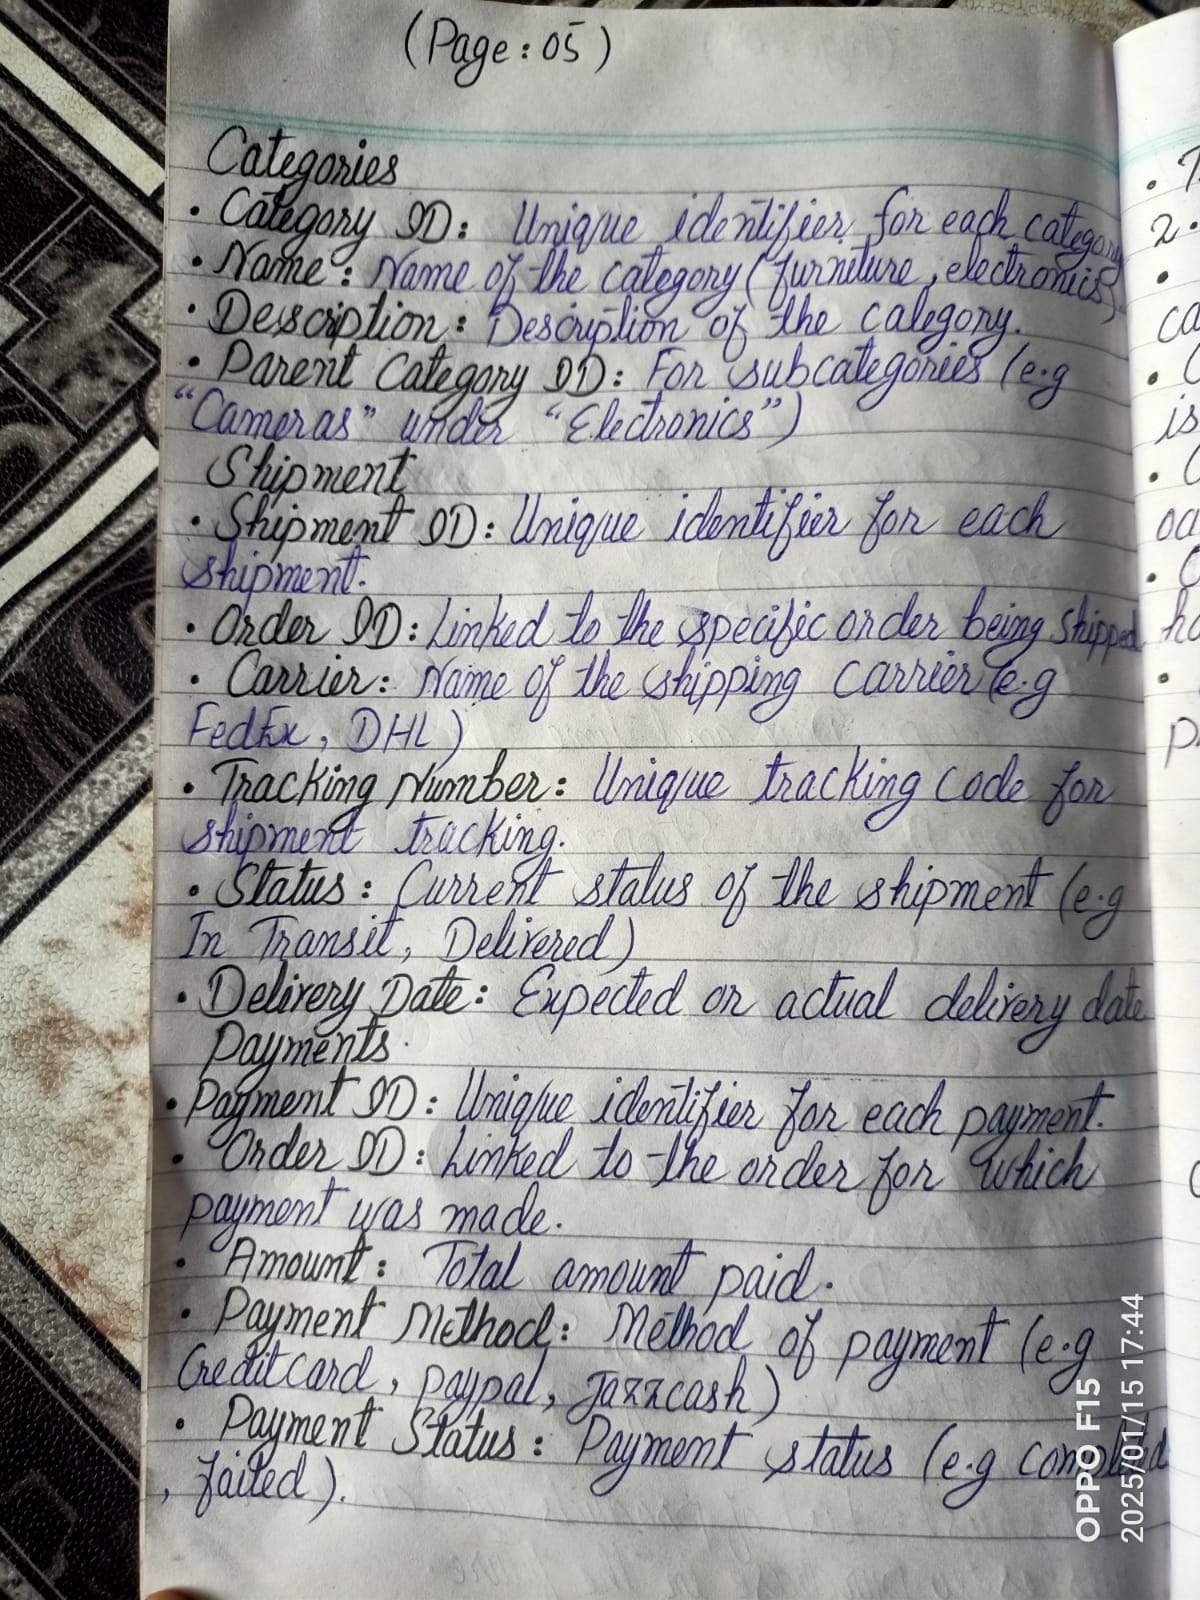 (Page: 05)
Categories
• Category ID: Unique identifier for each category
• Name: Name of the category (furniture, electronics).
• Description: Description of the category.
• Parent Category ID: For subcategories (e.g
"Cameras" under "Electronics")
Shipment
• Shipment ID: Unique identifier for each
shipment.
• Order ID: Linked to the specific order being shipped
• Carrier: Name of the shipping carrier (e.g
FedEx, DHL)
• Tracking Number: Unique tracking code for
shipment tracking.
• Status: Current status of the shipment (e.g
In Transit, Delivered)
• Delivery Date: Expected or actual delivery date
Payments.
• Payment ID: Unique identifier for each payment.
• Order ID: Linked to the order for which
payment was made.
• Amount: Total amount paid.
• Payment Method: Method of payment (e.g
Creditcard, paypal, Jazzcash)
• Payment Status: Payment status (e.g completed
, failed).
2.
is
OPPO F15
2025/01/15 17:44